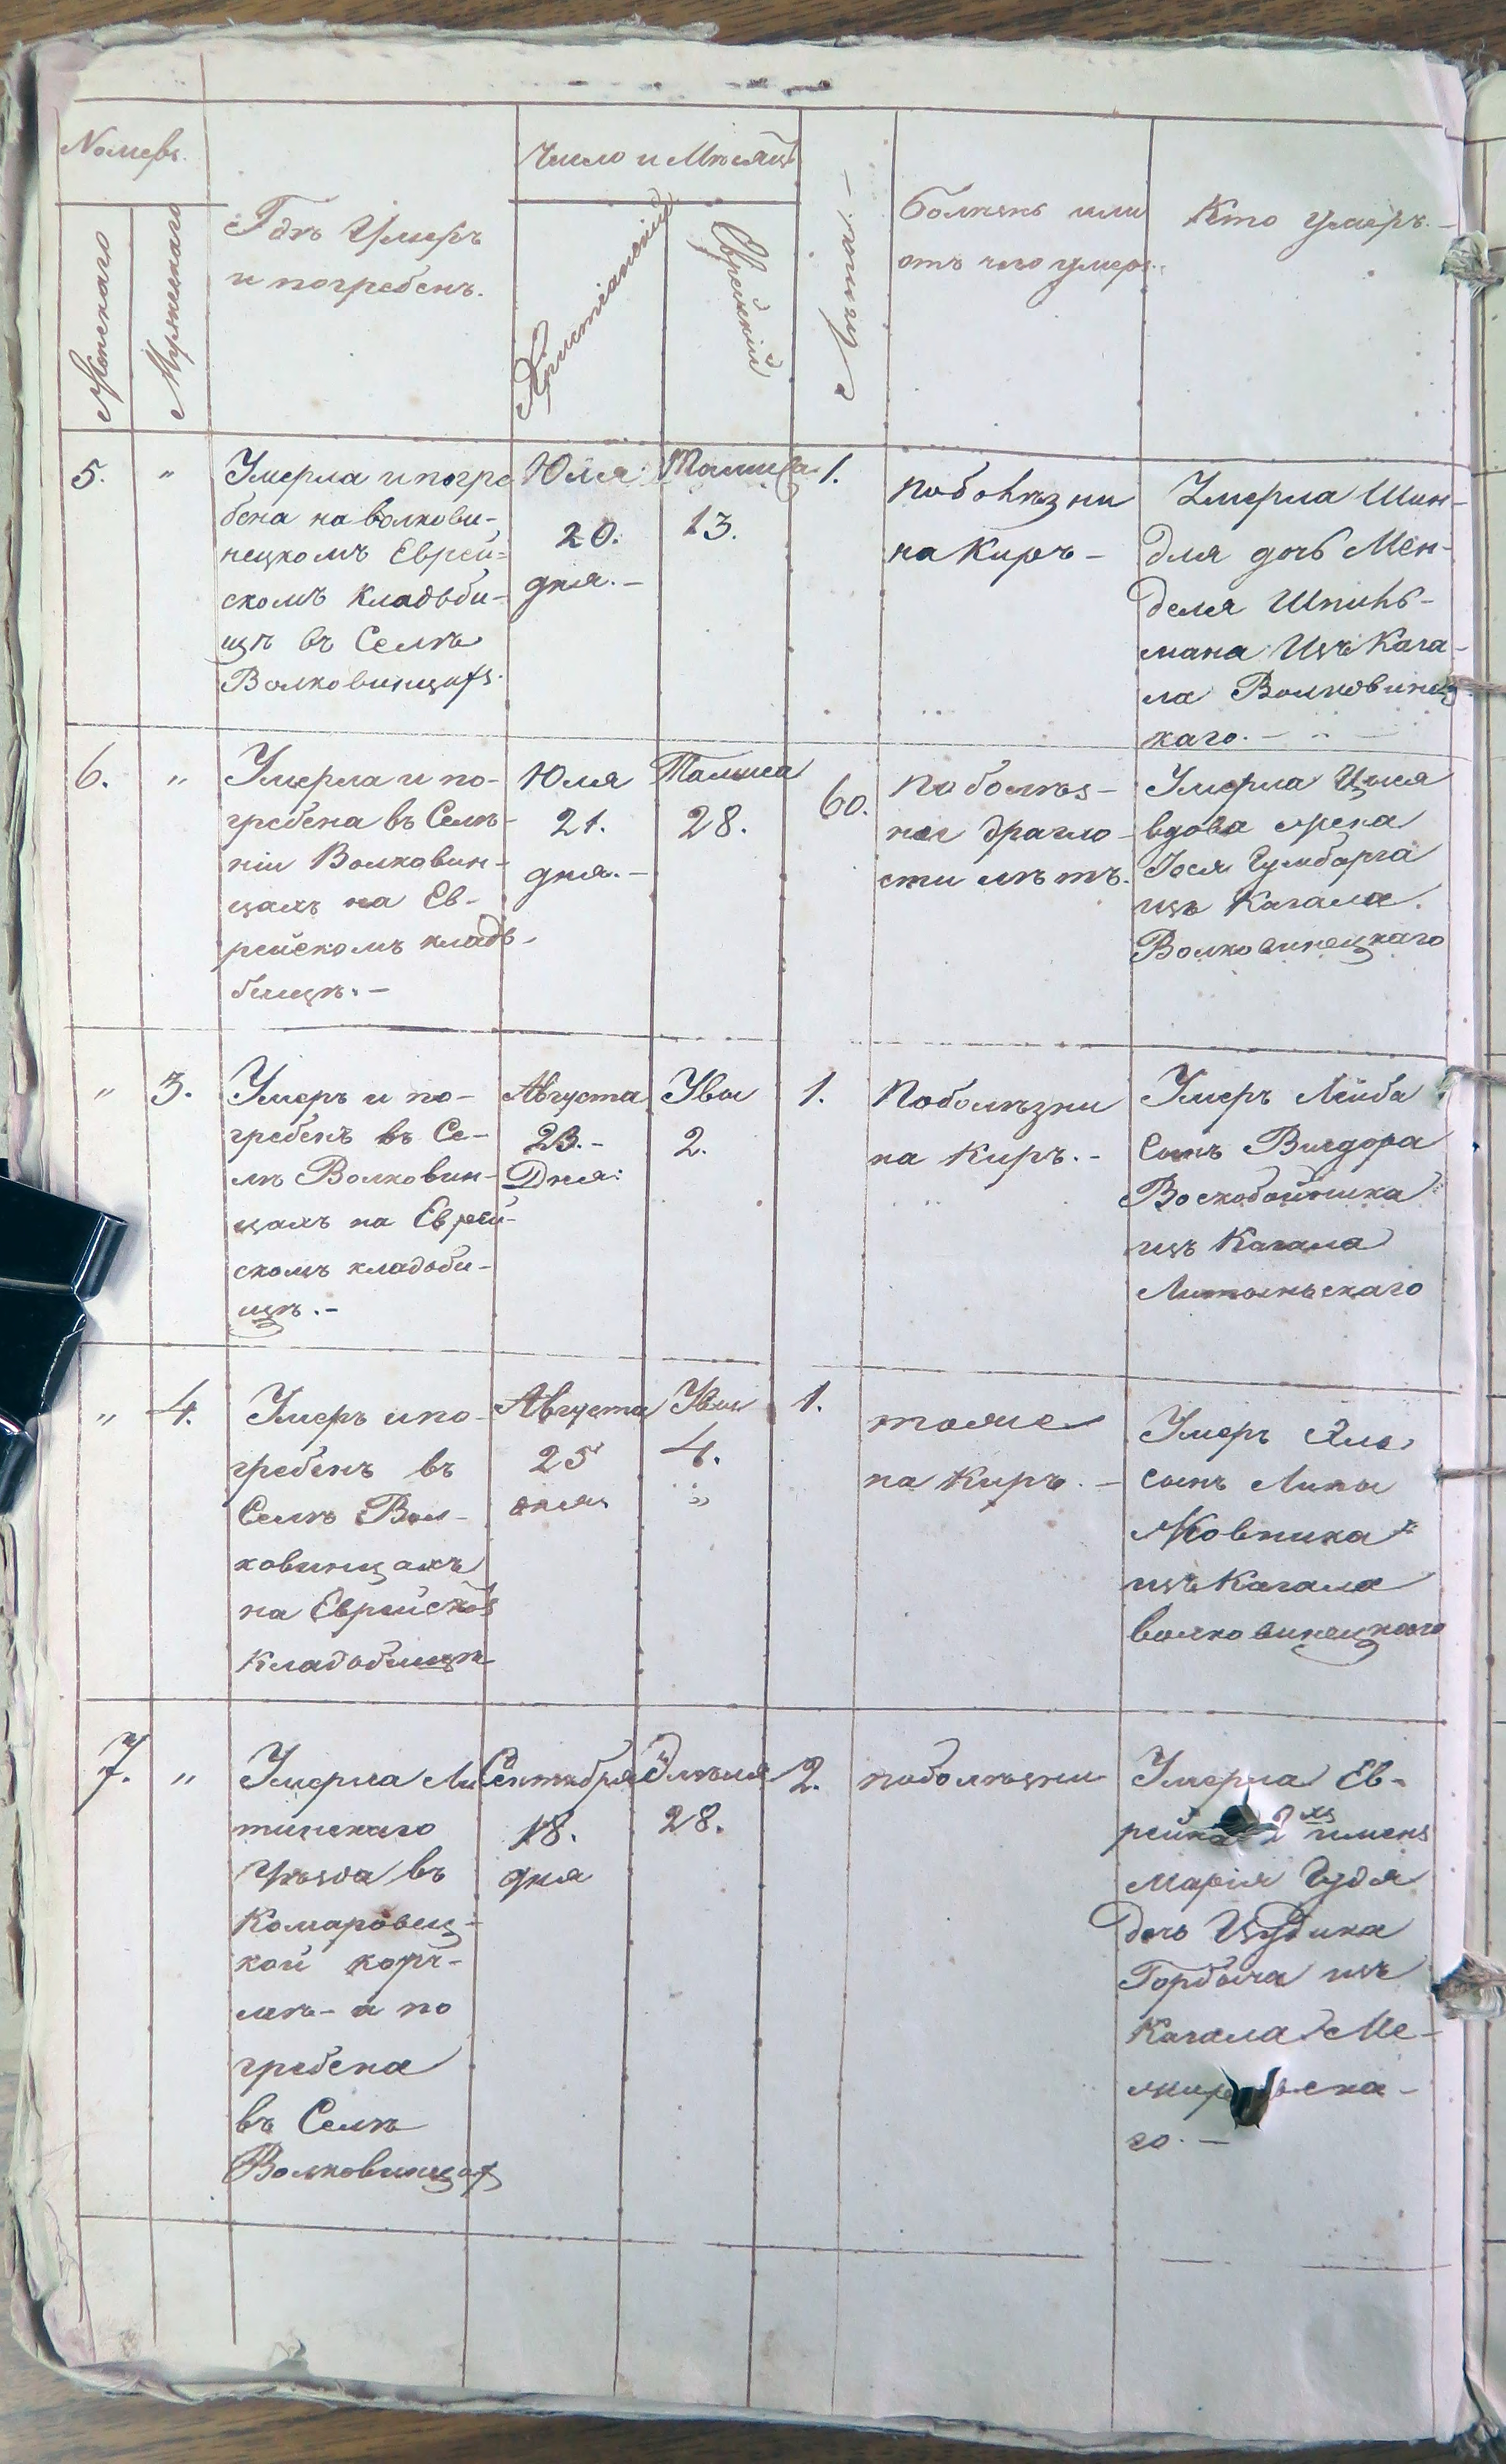 Номеръ.
Женскаго
Мужескаго
Гдѣ Умеръ
и погребенъ.
Число и Мѣсяцъ
Християнскій
Еврейскій
Лѣта. —
Болѣзнь или
отъ чего умеръ.
Кто умеръ. —
5.
"
Умерла и погре
бена на волкови-
нецкомъ Еврей-
скомъ кладьби-
щѣ въ Селѣ
Волковинцахъ.
Юля
20.
дня. —
Тамуса
13.
1.
по болѣзни
на Киръ —
Умерла Шин-
для дочь Мен-
деля Шпиль-
мана Изъ Кага-
ла Волковинец
каго. —
6.
"
Умерла и по-
гребена въ Селѣ-
ніи Волковин-
цахъ на Ев-
рейскомъ кладь-
бищѣ. —
Юля
21.
дня. —
Тамуса
28.
60.
по болѣз-
ни драгло-
сти лѣтъ.
Умерла Цыпя
вдова
Іося
изъ Кагала
Волковинецкаго
"
3.
Умеръ и по-
гребенъ въ Се-
лѣ Волковин-
цахъ на Еврей-
скомъ кладоби-
щѣ. —
Августа
23. -
Дня:
Увы
2.
1.
По болѣзни
на Киръ. -
Умеръ Лейба
Сынъ Вигдора
Воскобойника
изъ Кагала
Литыньскаго
"
4.
Умеръ и по-
гребенъ въ
Селѣ Вол-
ковинцахъ
на Еврейскоъ
Кладобищѣ
Августа
25
дня
Увы
4.
"
1.
тоже
на Киръ. —
Умеръ
сынъ Липы
Жовника
изъ Кагала
волковинецкаго
7.
"
Умерла Ли
тинскаго
Уѣзда въ
Комаровец-
кой корч-
мѣ - а по
гребена
въ Селѣ
Волковинцах
Сентября
18.
дня
Элюля
28.
2.
по болѣзни
Умерла Ев-
рейка 2хъ имень
Марія Гудя
дочь Изудика
Горбача изъ
Кагала Ме-
го. —